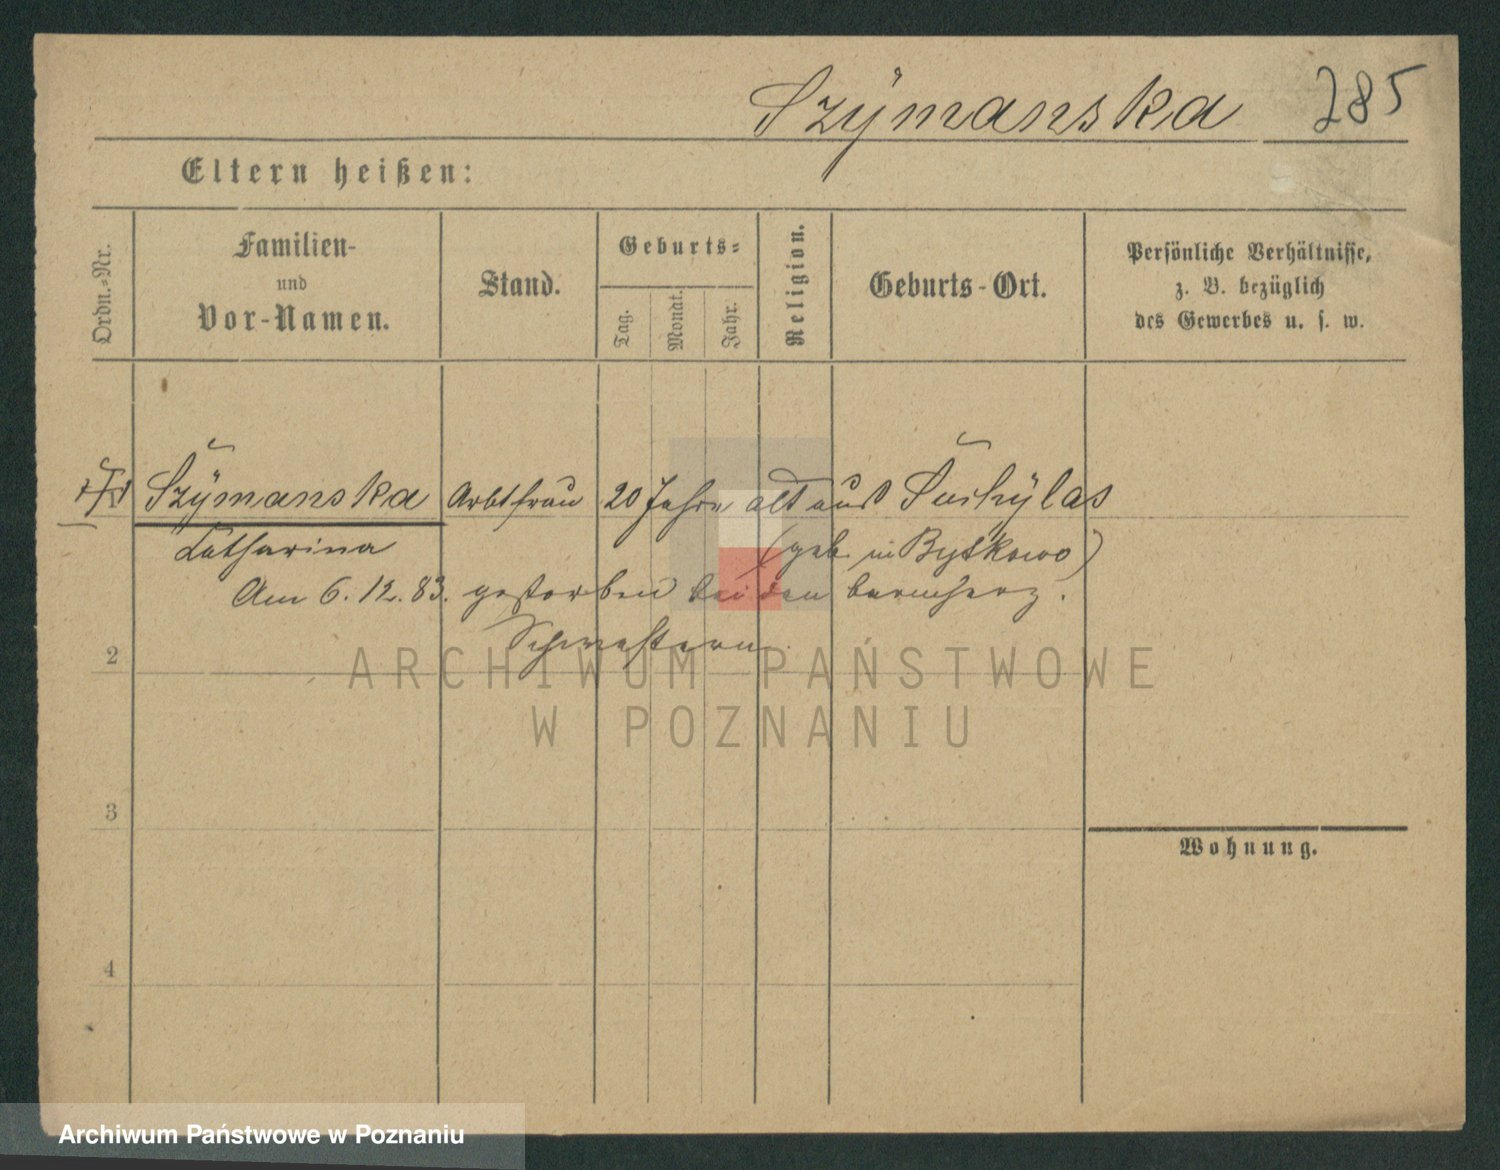 Szÿmanska 285
Eltern heißen:
Ordn.=Nr.
Familien-
und
Vor-Namen.
Stand.
Geburts=
Tag.
Monat.
Jahr.
Religion.
Geburts-Ort.
Persönliche Verhältnisse,
z. B. bezüglich
des Gewerbes u. s. w.
Szÿmanska Arbtfrau 20 Jahre alt aus Suchÿlas
Catharina (geb. in Bytkowo)
Am 6. 12. 83. gestorben bei den barmherz.
Schwestern.
2
3
4
Wohnung.
ARCHIWUM PAŃSTWOWE
W POZNANIU
Archiwum Państwowe w Poznaniu